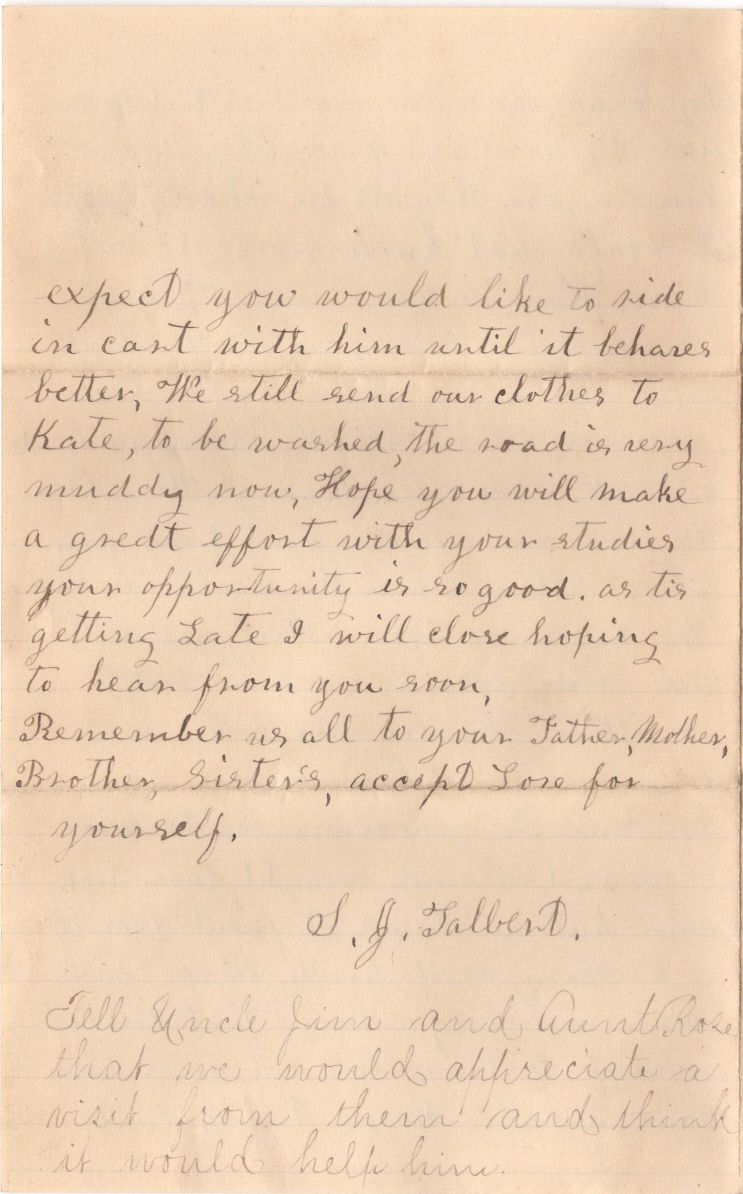 expect you would like to ride
in cart with him until it behaves
better, We still send our clothes to
Kate, to be washed, the road is very
muddy now, Hope you will make
a great effort with your studies
your opportunity is so good. as tis
getting Late I will close hoping
to hear from you soon,
Remember us all to your Father, Mother,
Brother, Sister's, accept Love for
yourself.
S. J. Talbert.
Tell Uncle Jim and Aunt Rose
that we would appreciate a
visit from them and think
it would help him.